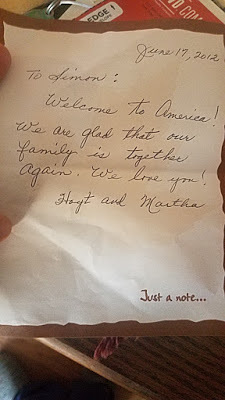 June 17, 2012
To Simon:
Welcome to America!
We are glad that our
family is together
again. We love you!
Hoyt and Martha
Just a note...